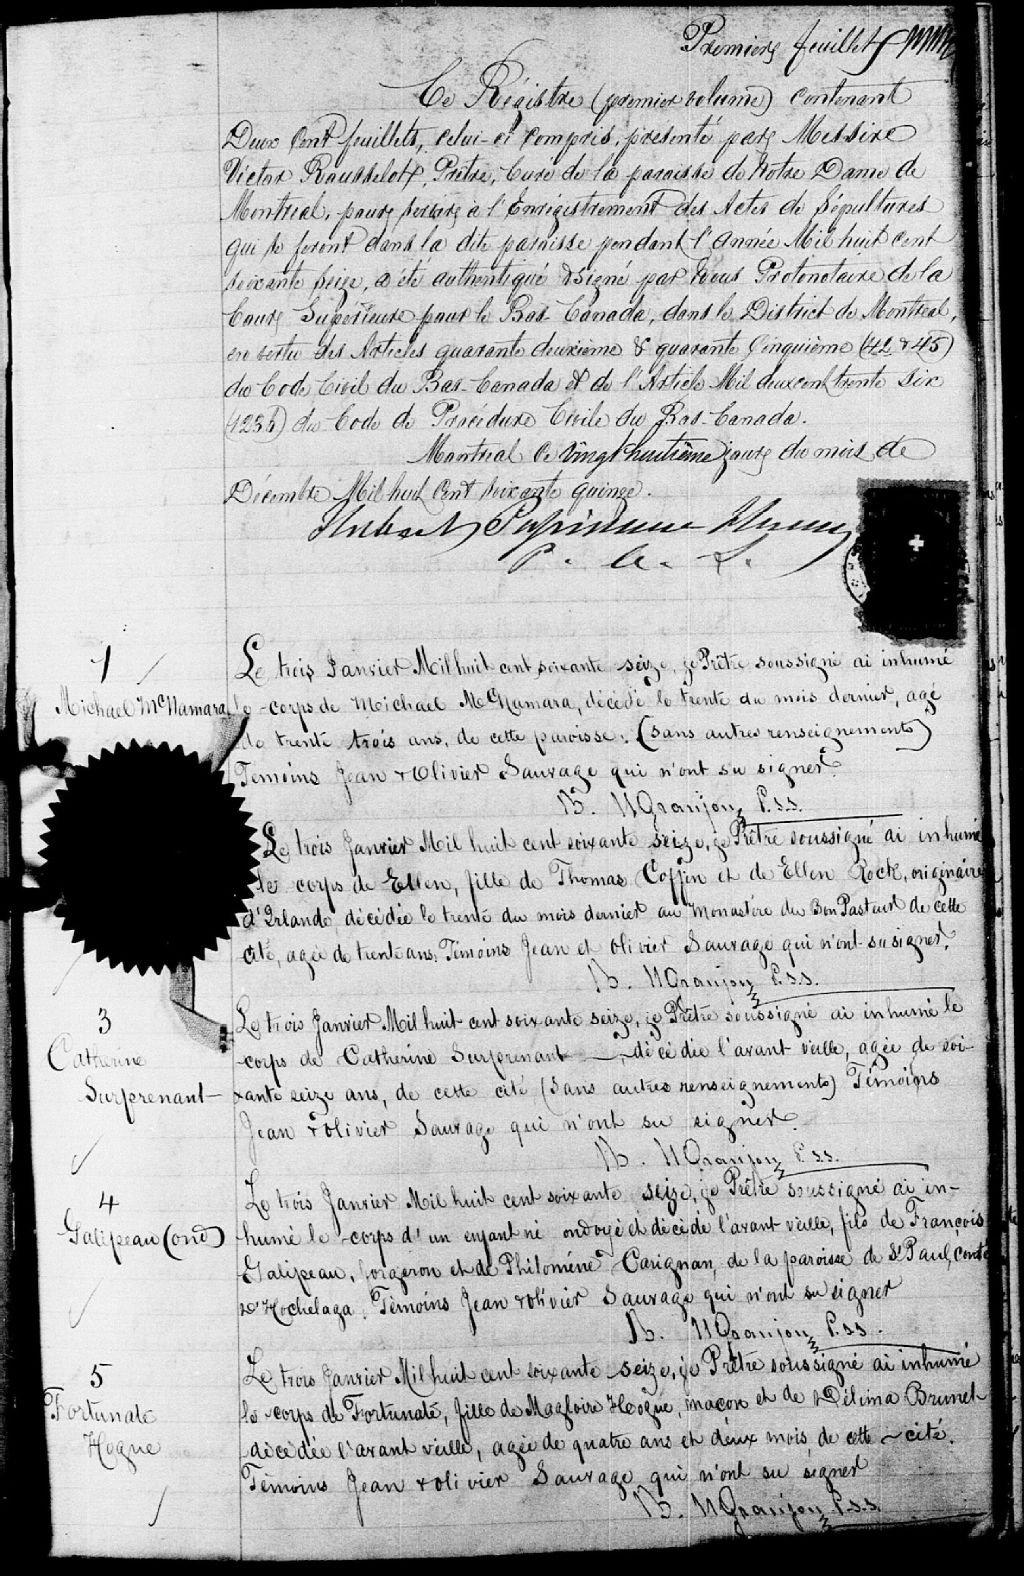 Premier feuillet
Ce Régistre (premier volume) contenant
Deux Cent feuillets, celui-ci compris, présenté par Messire
Victor Rousselot, Prêtre, Curé de la paroisse de Notre Dame de
Montréal, pour servir à l'Enrégistrement des Actes de Sépultures
qui se feront dans la dite paroisse pendant l'Année Mil huit cent
soixante seize, a été authentiqué & signé par Nous Protonotaire de la
Cour Supérieure pour le Bas-Canada, dans le District de Montréal,
en vertu des Articles quarante deuxième & quarante Cinquième (42 & 45)
du Code Civil du Bas-Canada & de l'Article Mil deux cent trente six
(1236) du Code de Procédure Civile du Bas-Canada.
Montréal ce vingt huitième jour du mois de
Décembre Mil huit Cent soixante quinze.
Hubert Papineau Honey
P. C. S.
1
Michael McNamara
Le trois Janvier Mil huit cent soixante seize, je Prêtre soussigné ai inhumé
le corps de Michael McNamara, décédé le trente du mois dernier, agé
de trente trois ans, de cette paroisse. (Sans autres renseignements)
Témoins Jean & Olivier Sauvage qui n'ont su signer.
N Granjon P.S.S.
Le trois Janvier Mil huit cent soixante seize, je Prêtre soussigné ai inhumé
le corps de Ellen, fille de Thomas Coffin et de Ellen Rock, originaire
d'Irlande, décédée le trente du mois dernier au Monastère du Bon Pasteur de cette
cité, agée de trente ans. Témoins Jean et Olivier Sauvage qui n'ont su signer.
N Granjon P.S.S.
3
Catherine
Surprenant
Le trois Janvier Mil huit cent soixante seize, je Prêtre soussigné ai inhumé le
corps de Catherine Surprenant décédée l'avant veille, agée de soi-
xante seize ans, de cette cité (Sans autres renseignements) Témoins
Jean & Olivier Sauvage qui n'ont su signer.
N Granjon P.S.S.
4
Galipeau (ond)
Le trois Janvier Mil huit cent soixante seize, je Prêtre soussigné ai in-
humé le corps d'un enfant né ondoyé et décédé l'avant veille, fils de François
Galipeau, forgeron et de Philomène Carignan, de la paroisse de St Paul, comté
d'Hochelaga. Témoins Jean & Olivier Sauvage qui n'ont su signer
N Granjon P.S.S.
5
Fortunate
Hogue
Le trois Janvier Mil huit cent soixante seize, je Prêtre soussigné ai inhumé
le corps de Fortunate, fille de Magloire Hogue, maçon et de Délima Brunet
décédée l'avant veille, agée de quatre ans et deux mois, de cette cité.
Témoins Jean & Olivier Sauvage qui n'ont su signer
N Granjon P.S.S.